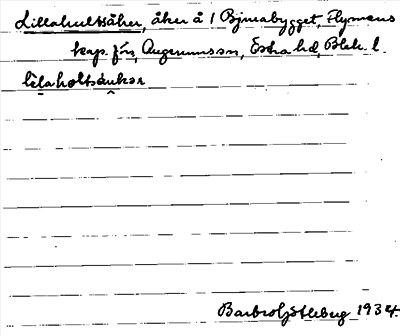 Lillahultsåker, åker å 1 Björnabygget, Flymens
kap. förs, Augerums sn, Östra hd, Blek. l.
lilaholtsåukər
Barbro Ljötleberg 1934.